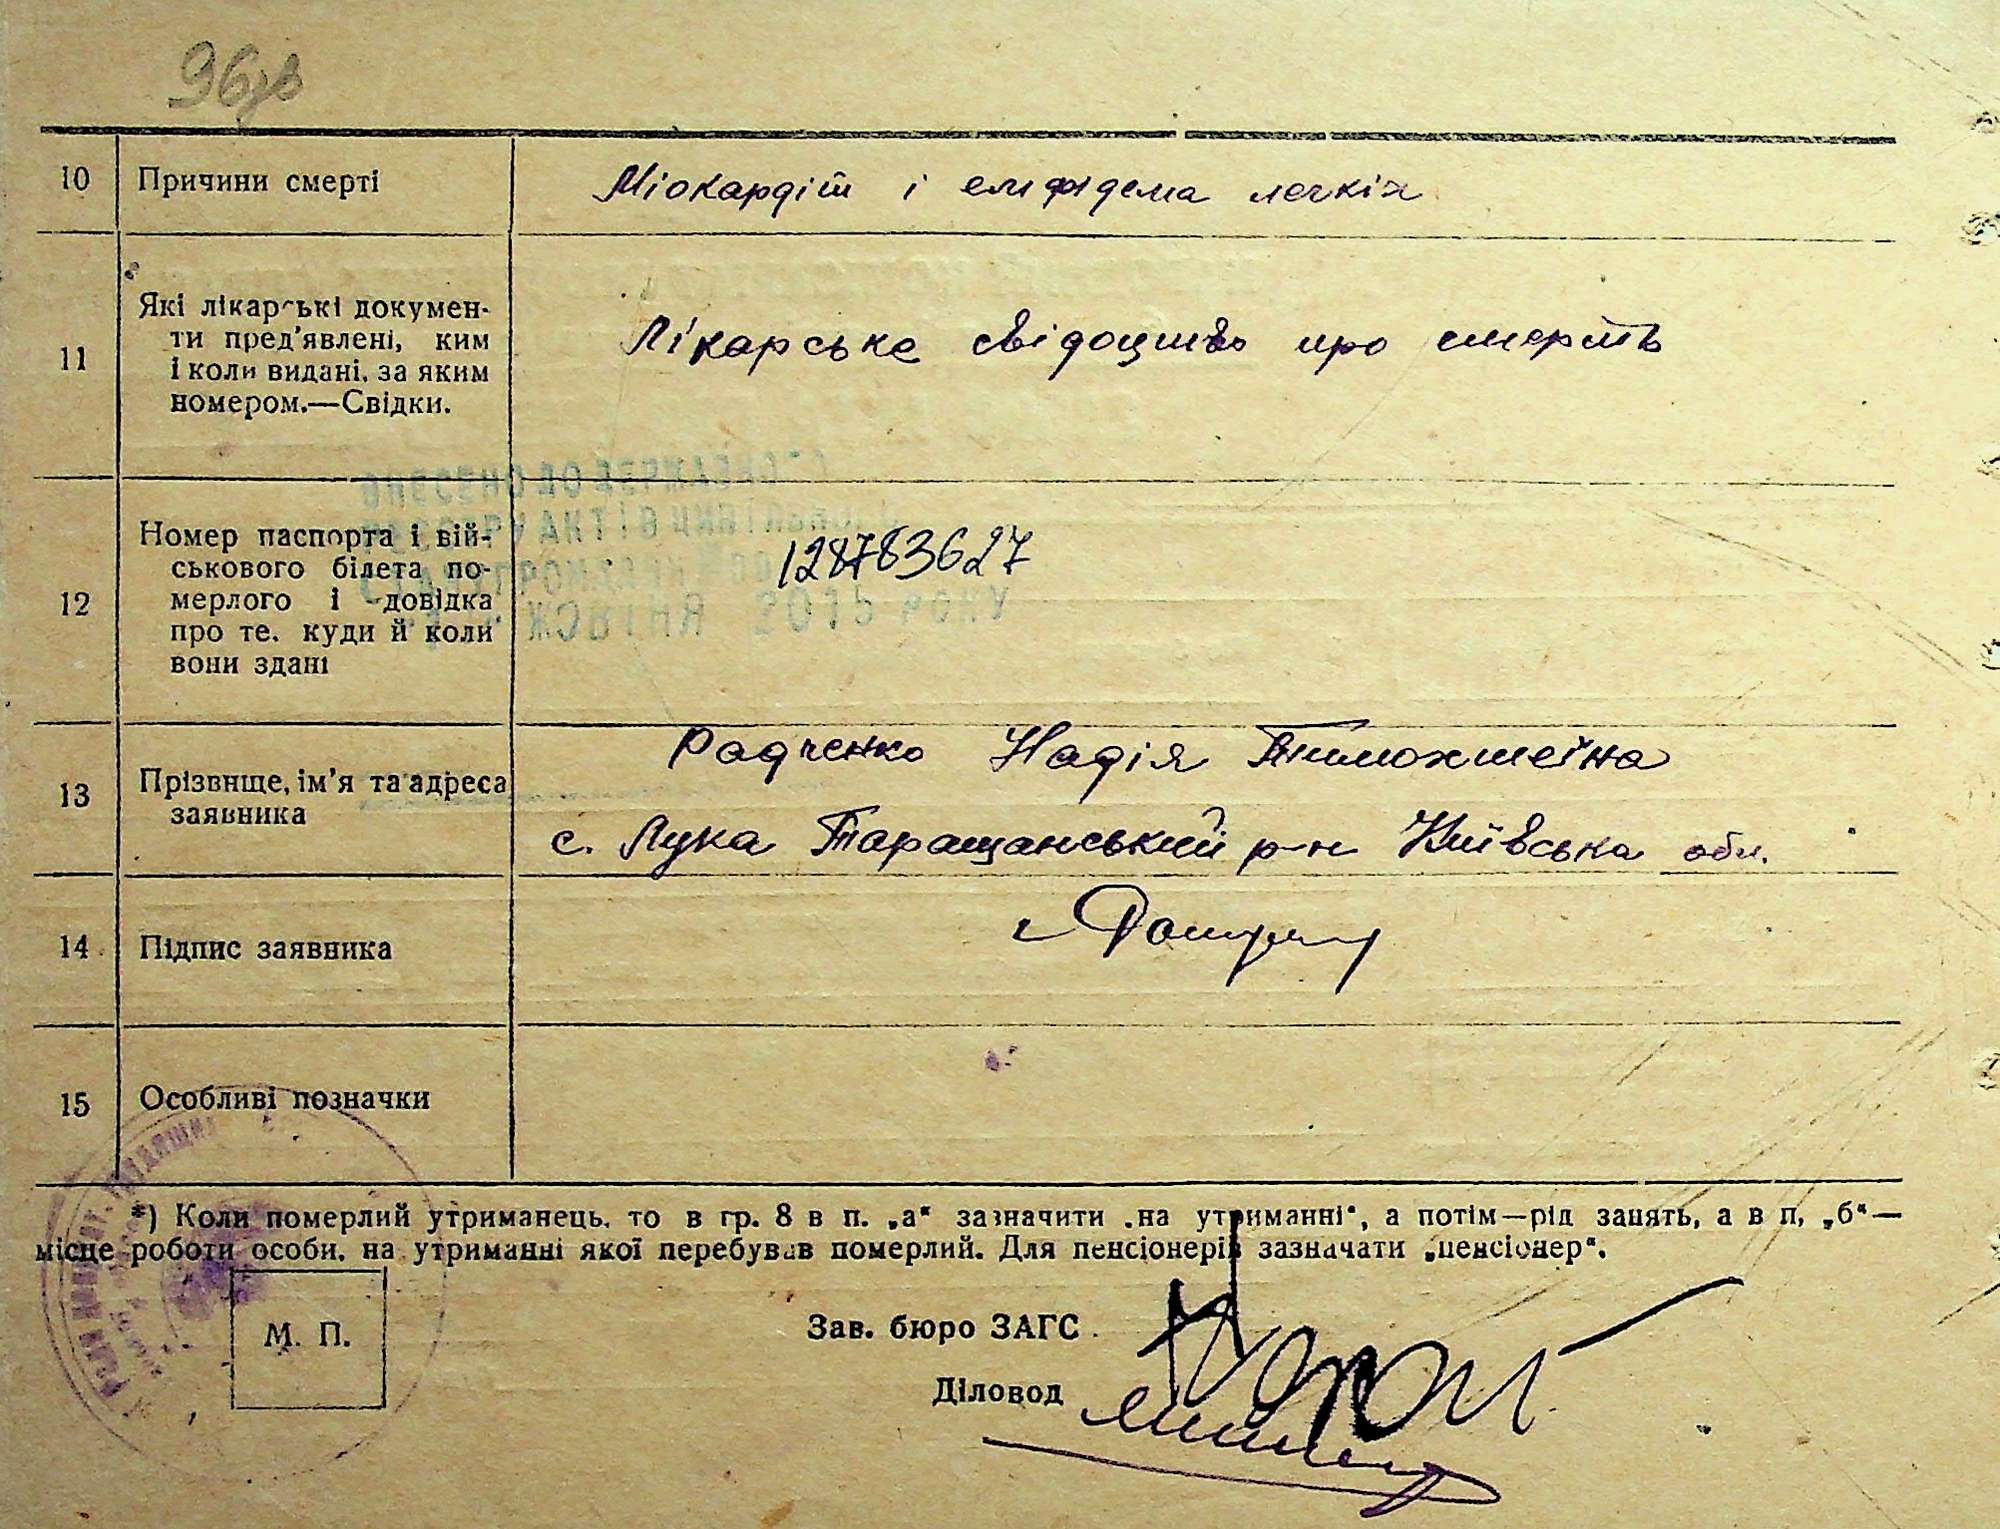 96зв
10 Причини смерті Міокардіт і емфідема легкіх
11 Які лікарські докумен-
ти пред'явлені, ким
і коли видані, за яким
номером.—Свідки.
Лікарське свідоцтво про смерть
ВНЕСЕНО ДО ДЕРЖАВНОГО
РЕЄСТРУ АКТІВ ЦИВІЛЬНОГО
СТАНУ ГРОМАДЯН
ЖОВТНЯ 2015 РОКУ
12 Номер паспорта і вій-
ськового білета по-
мерлого і довідка
про те, куди й коли
вони здані
128783627
13 Прізвище, ім'я та адреса
заявника
Радченко Надія Тимохтеївна
с. Лука Таращанський р-н Київська обл.
14 Підпис заявника
15 Особливі позначки
*) Коли померлий утриманець, то в гр. 8 в п. „а“ зазначити „на утриманні“, а потім—рід занять, а в п. „б“—
місце роботи особи, на утриманні якої перебував померлий. Для пенсіонерів зазначати „пенсіонер“.
М. П.
Зав. бюро ЗАГС
Діловод